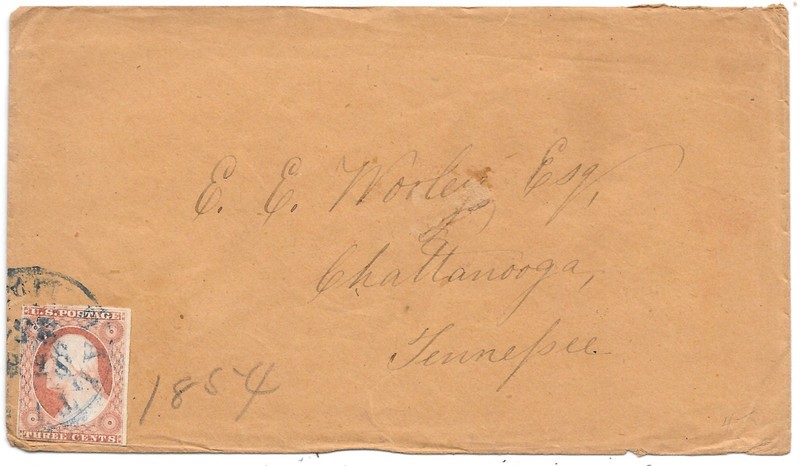 E. E. Worley Esq,
Chattanooga,
Tennessee
1854
U.S. POSTAGE
THREE CENTS